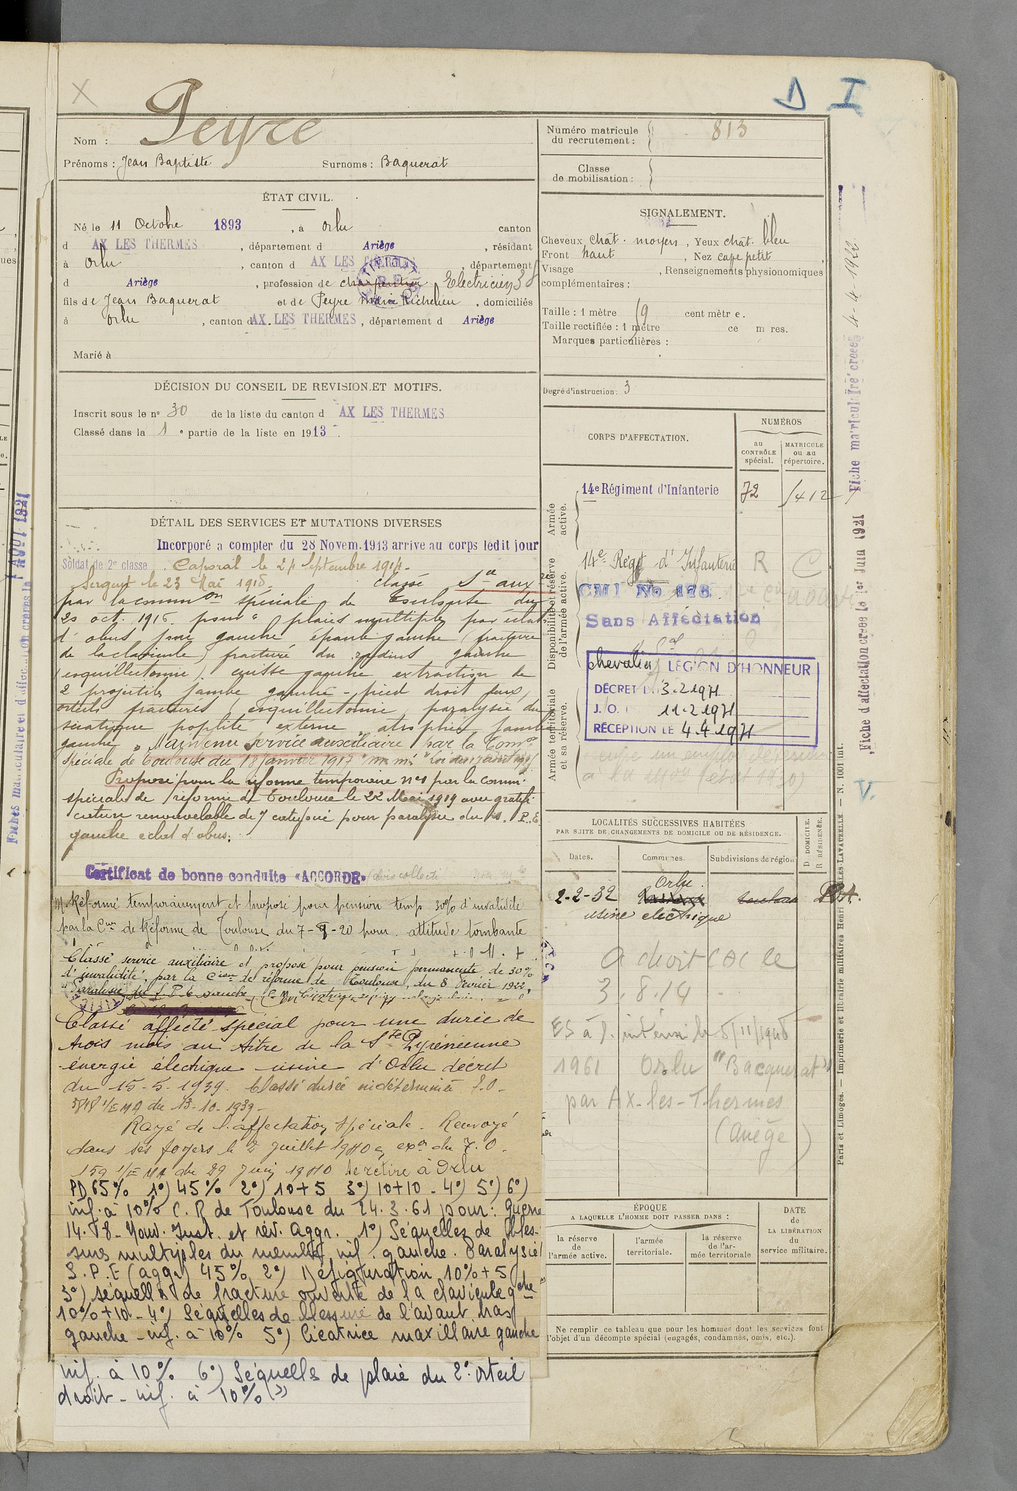 D I
Nom : Peyre
Prénoms : Jean Baptiste Surnoms : Baquerat
ÉTAT CIVIL.
Né le 11 Octobre 1893, à Orlu canton
d AX LES THERMES, département d Ariège, résidant
à Orlu, canton d AX LES THERMES, département
d Ariège, profession de charpentier Electricien
fils de Jean Baquerat et de Peyre Richelieu, domiciliés
à Orlu, canton d AX LES THERMES, département d Ariège
Marié à
DÉCISION DU CONSEIL DE REVISION ET MOTIFS.
Inscrit sous le n° 30 de la liste du canton d AX LES THERMES
Classé dans la 1e partie de la liste en 1913.
DÉTAIL DES SERVICES ET MUTATIONS DIVERSES
Incorporé a compter du 28 Novem. 1913 arrive au corps ledit jour
Soldat de 2e classe. Caporal le 21 Septembre 1914.
Sergent le 23 Mai 1915. Classé Sce aux
par la common spéciale de Toulouse du
20 oct. 1916. pour "plaies multiples par éclats
d'obus joue gauche épaule gauche (fracture
de la clavicule) fracture du radius gauche
(esquillectomie) cuisse gauche extraction de
2 projectiles jambe gauche - pied droit deux
orteils fracturés (esquillectomie) paralysie du
sciatique poplité externe atrophie jambe
gauche". Maintenu Service auxiliaire par la Comon
spéciale de Toulouse du 18 janvier 1917
Proposé pour la réforme temporaire n°1 par la comm.
spéciale de réforme de Toulouse le 22 Mai 1919 avec gratifi-
cation renouvelable de 7 catégorie pour paralysie du S.P.E
gauche eclat d'obus.
Certificat de bonne conduite «ACCORDÉ»
Réformé temporairement et proposé pour pension temp 30% d'invalidité
par la Con de Réforme de Toulouse du 7-9-20 pour attitude tombante
Classé service auxiliaire et proposé pour pension permanente de 30%
d'invalidité, par la Cion de réforme de Toulouse, du 8 Février 1922,
Paralysie du S.P.E gauche
Classé affecté spécial pour une durée de
trois mois au titre de la Sté Pyrénéenne
énergie électrique usine d'Orlu décret
du 15-5-1939. Classé durée indéterminée S.O.
1/EMA du 13-10-1939-
Rayé de l'affectation spéciale. Renvoyé
dans ses foyers le 2 Juillet 1940 exon du T.O.
159 1/EMA du 29 Juin 1940 se retire à Orlu
PD 65% 1°) 45% 2°) 10+5 3°) 10+10 - 4°) 5°) 6°)
inf. à 10% C.R de Toulouse du 24.3.61 pour: Guerre
14.18 - Nouv. Inst. et rév. Aggr. 1°) Séquelles de bles-
sures multiples du membre inf. gauche. Paralysie
S.P.E (aggr) 45% 2°) Défiguration 10%+5
3°) séquelles de fracture ouverte de la clavicule gche
10%+10 - 4°) Séquelles de blessure de l'avant bras
gauche - inf. à 10% 5°) Cicatrice maxillaire gauche
inf. à 10% 6°) Séquelles de plaie du 2° orteil
droit - inf. à 10% (»)
Numéro matricule du recrutement : 813
Classe de mobilisation :
SIGNALEMENT.
Cheveux chat. moyen, Yeux chat. bleu
Front haut, Nez petit,
Visage, Renseignements physionomiques
complémentaires :
Taille : 1 mètre 69 centimètres.
Taille rectifiée : 1 mètre centimètres.
Marques particulières :
Degré d'instruction : 3
CORPS D'AFFECTATION.
NUMÉROS
AU CONTRÔLE spécial.
MATRICULE ou au répertoire.
Armée active.
14e Régiment d'Infanterie 72
Disponibilité et réserve de l'armée active.
14e Régt d'Infanterie R C
CMI No 176
Sans Affectation
Armée territoriale et sa réserve.
chevalier LÉGION D'HONNEUR
DÉCRET 3.2.1971
J. O. 11.2.1971
RÉCEPTION LE 4.4.1971
LOCALITÉS SUCCESSIVES HABITÉES
PAR SUITE DE CHANGEMENTS DE DOMICILE OU DE RÉSIDENCE.
Dates. Communes. Subdivisions de région. D. DOMICILE. R. RÉSIDENCE.
2-2-32 Orlu
usine electrique
A droit CAC le
3.8.14
1961 Orlu "Bacquerat"
par Ax-les-Thermes
(Ariège)
ÉPOQUE
A LAQUELLE L'HOMME DOIT PASSER DANS :
la réserve de l'armée active.
l'armée territoriale.
la réserve de l'armée territoriale
DATE de LA LIBÉRATION du service militaire.
Ne remplir ce tableau que pour les hommes dont les services font
l'objet d'un décompte spécial (engagés, condamnés, omis, etc.).
Fiche matricule créée 4-4-1922
Fiche d'affectation créée le 1er Juin 1921
V.